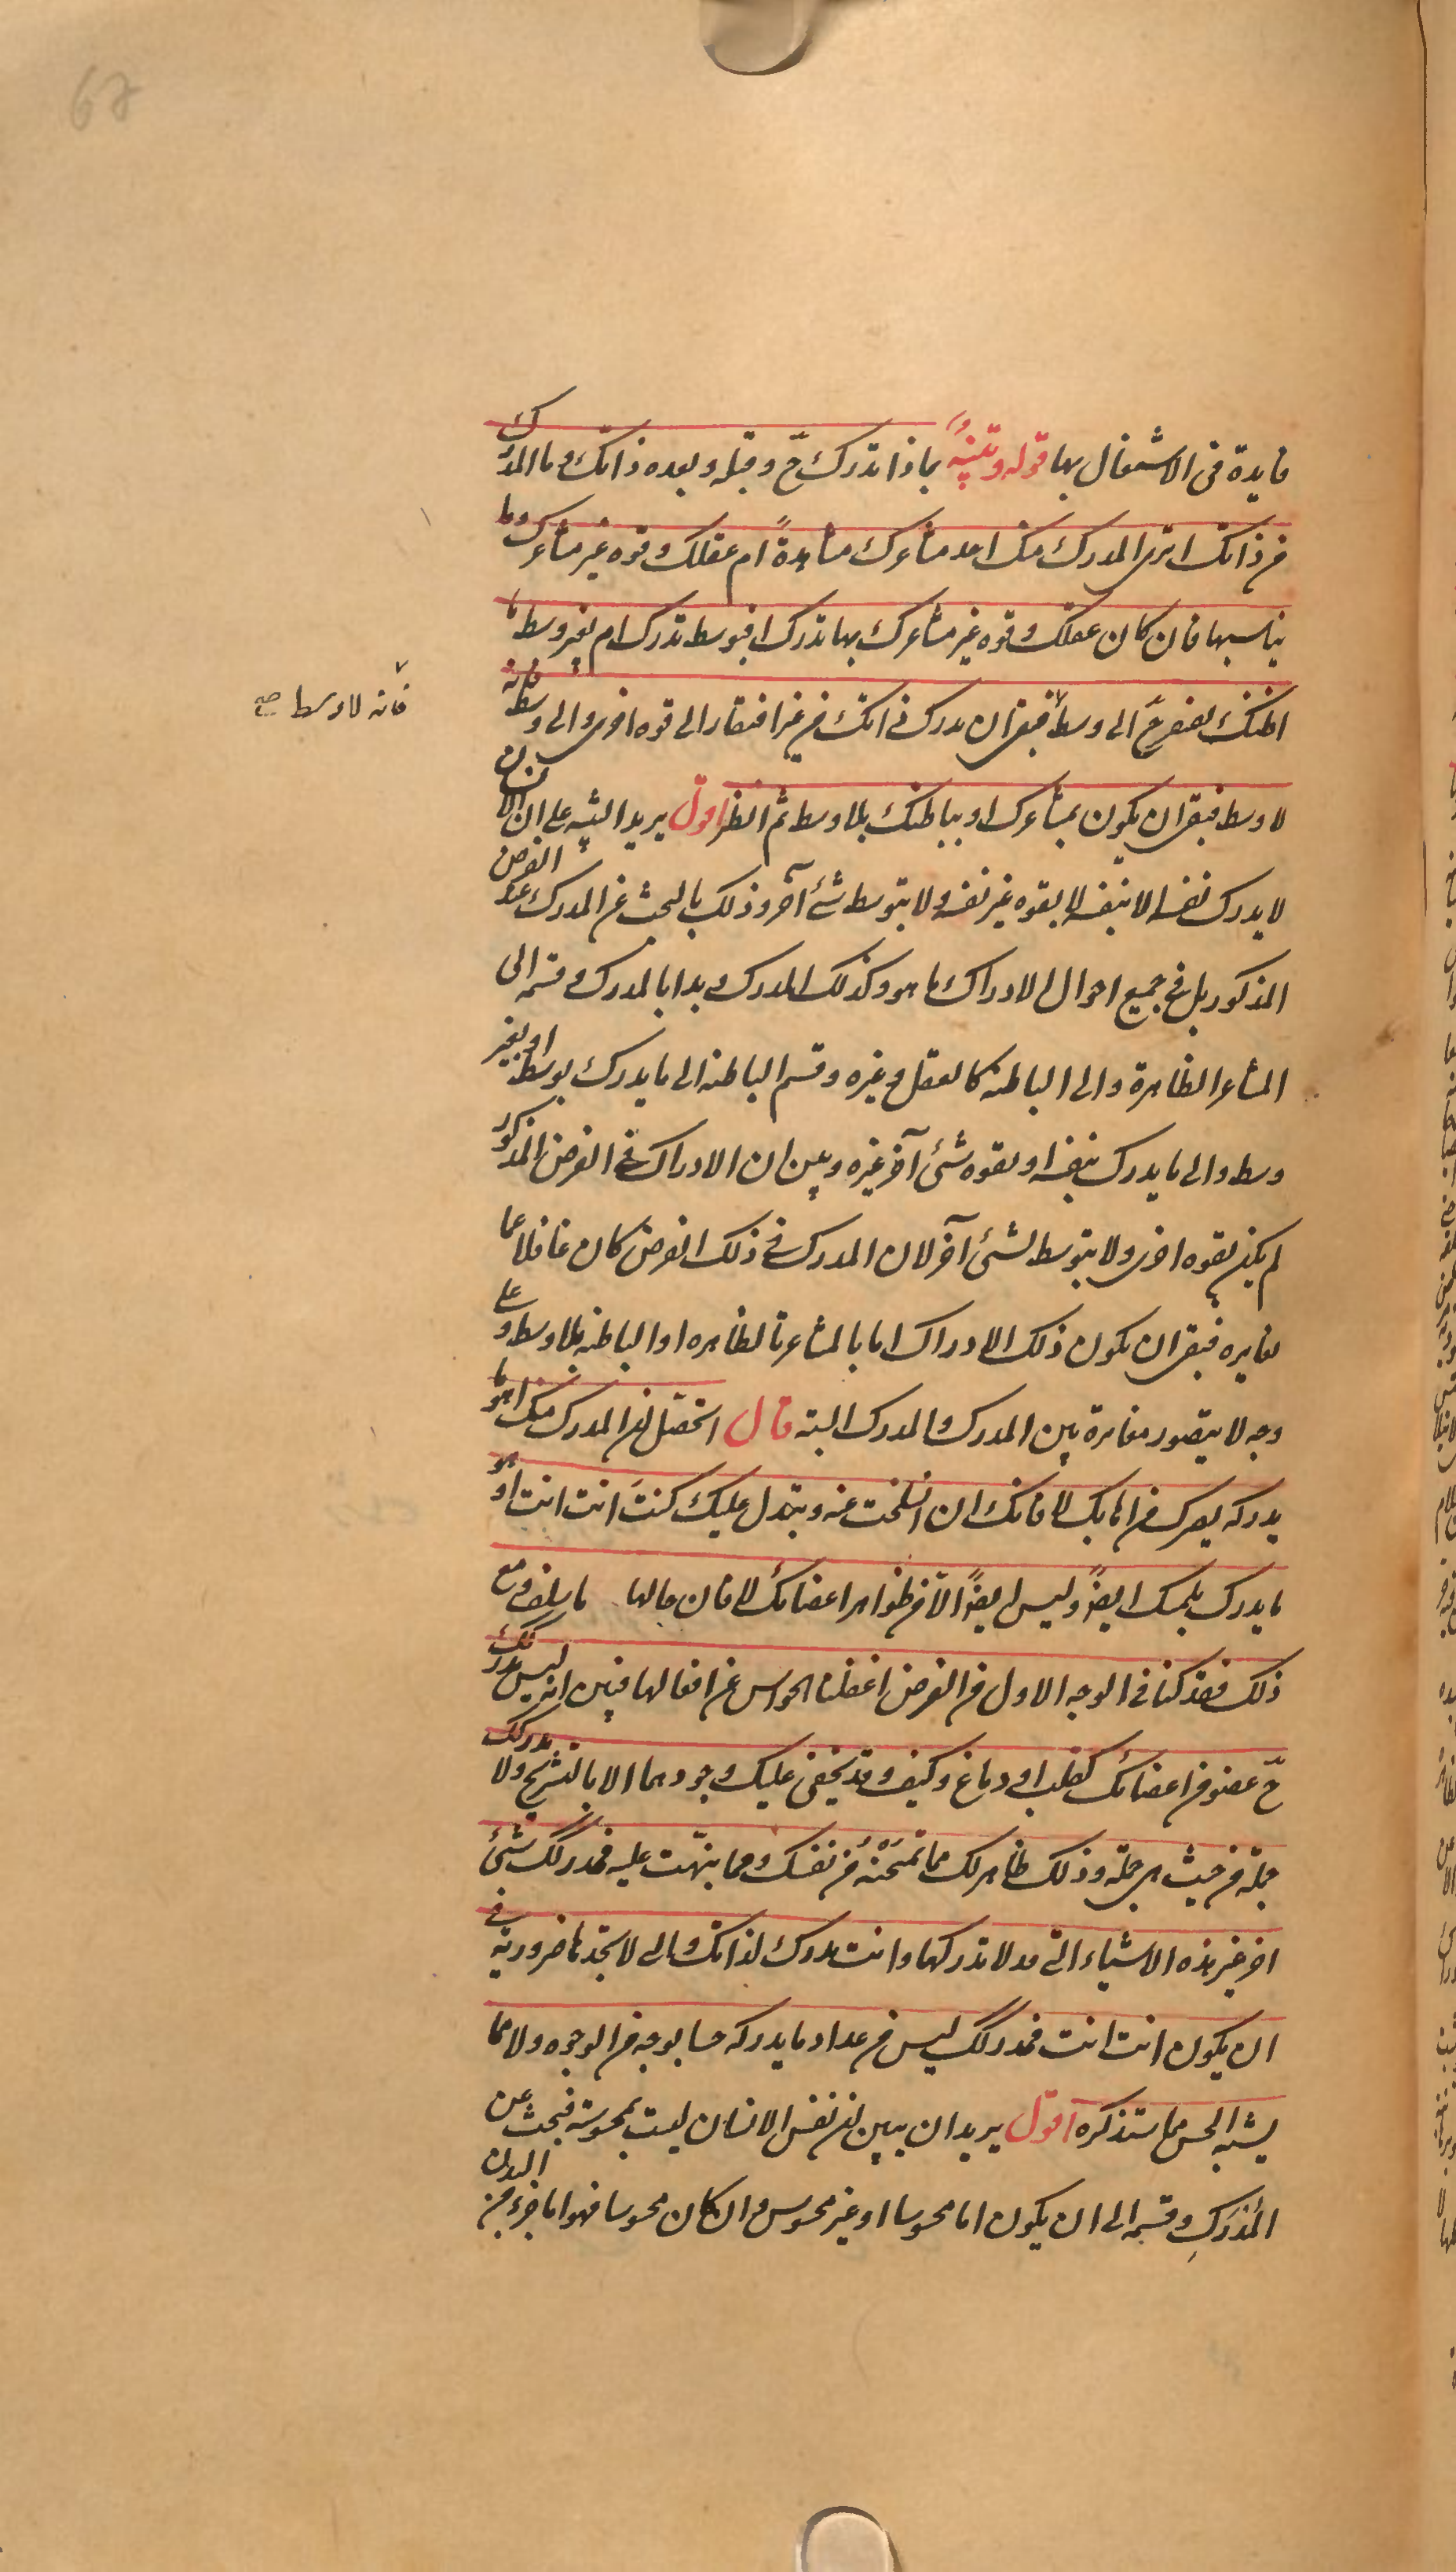 67
فايدة فى الاشتغال بها قوله وتنبيه بماذا تدرك ح وقبله وبعده ذاتك وما المدرك
من ذاتك اترى المدرك منك احد مشاعرك مشاهدةً ام عقلك وقوه غير مشاعرك وما
يناسبها فان كان عقلك وقوه غير مشاعرك بها تدرك افبوسط تدرك ام بغير وسط ما
اظنك تفتقر ح الى وسط فبقى ان تدرك ذاتك من غير افتقار الى قوه اخرى والى وسط فانه
فانه لا وسط صح
لا وسط فبقى ان يكون بمشاعرك او بباطنك بلا وسط ثم انظر اقول يريد التنبيه على ان الانسان
لا يدرك نفسه الا بنفسه لا بقوه غير نفسه ولا بتوسط شئ آخر وذلك بالبحث عن المدرك عند الفرض
المذكور بل فى جميع احوال الادراك ما هو وكذلك المدرك وبدا بالمدرك وقسمه الى
المشاعر الظاهرة والى الباطنه كالعقل وغيره وقسم الباطنه الى ما يدرك بوسط او بغير
وسط والى ما يدرك بنفسه او بقوه شئ آخر غيره وبين ان الادراك فى الفرض المذكور
لم يكن بقوه اخرى ولا بتوسط شئ آخر لان المدرك فى ذلك الفرض كان غافلا عما
يغايره فبقى ان يكون ذلك الادراك اما بالمشاعر الظاهره او الباطنه بلا وسط وعلى
وجه لا يتصور مغايرة بين المدرك والمدرك البته قال اتحصل ان المدرك منك اهو ما
يدركه بصرك من اهابك لا فانك ان انسلخت عنه وتبدل عليك كنتَ انت انت او هو
ما يدرك بلمسك ايضًا وليس ايضًا الا من ظواهر اعضائك لا فان حالها ما سلف ومع
ذلك فقد كنا فى الوجه الاول من الفرض اغفلنا الحواس عن افعالها فبين انه ليس مدركك
ح عضو من اعضائك كقلب او دماغ وكيف وقد يخفى عليك وجودهما الا بالتشريح ولا مدركك
جملة من حيث هى جملة وذلك ظاهر لك مما تمتحنه من نفسك ومما نبهت عليه فمدركك شئ
اخر غير هذه الاشياء التى قد لا تدركها وانت مدرك لذاتك والتى لا تجدها ضرورية فى
ان يكون انت انت فمدركك ليس من عداد ما يدركه حسا بوجه من الوجوه ولا مما
يشبه الحس مما ستذكره اقول يريد ان يبين ان نفس الانسان ليست بمحسوسة فبحث عن
المُدرَك وقسمه الى ان يكون اما محسوسا او غير محسوس وان كان محسوسا فهو اما جزء من البدن